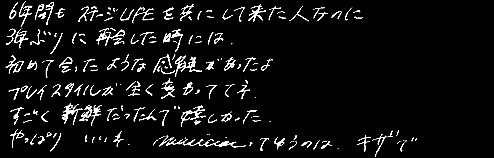 6年間もステージLIFEを共にして来た人なのに
3年ぶりに再会した時には、
初めて会ったような感覚があったよ
プレイスタイルが全く変わっててネ.
すごく新鮮だったんで嬉しかった.
やっぱり いいネ. てゆうのは、キザで